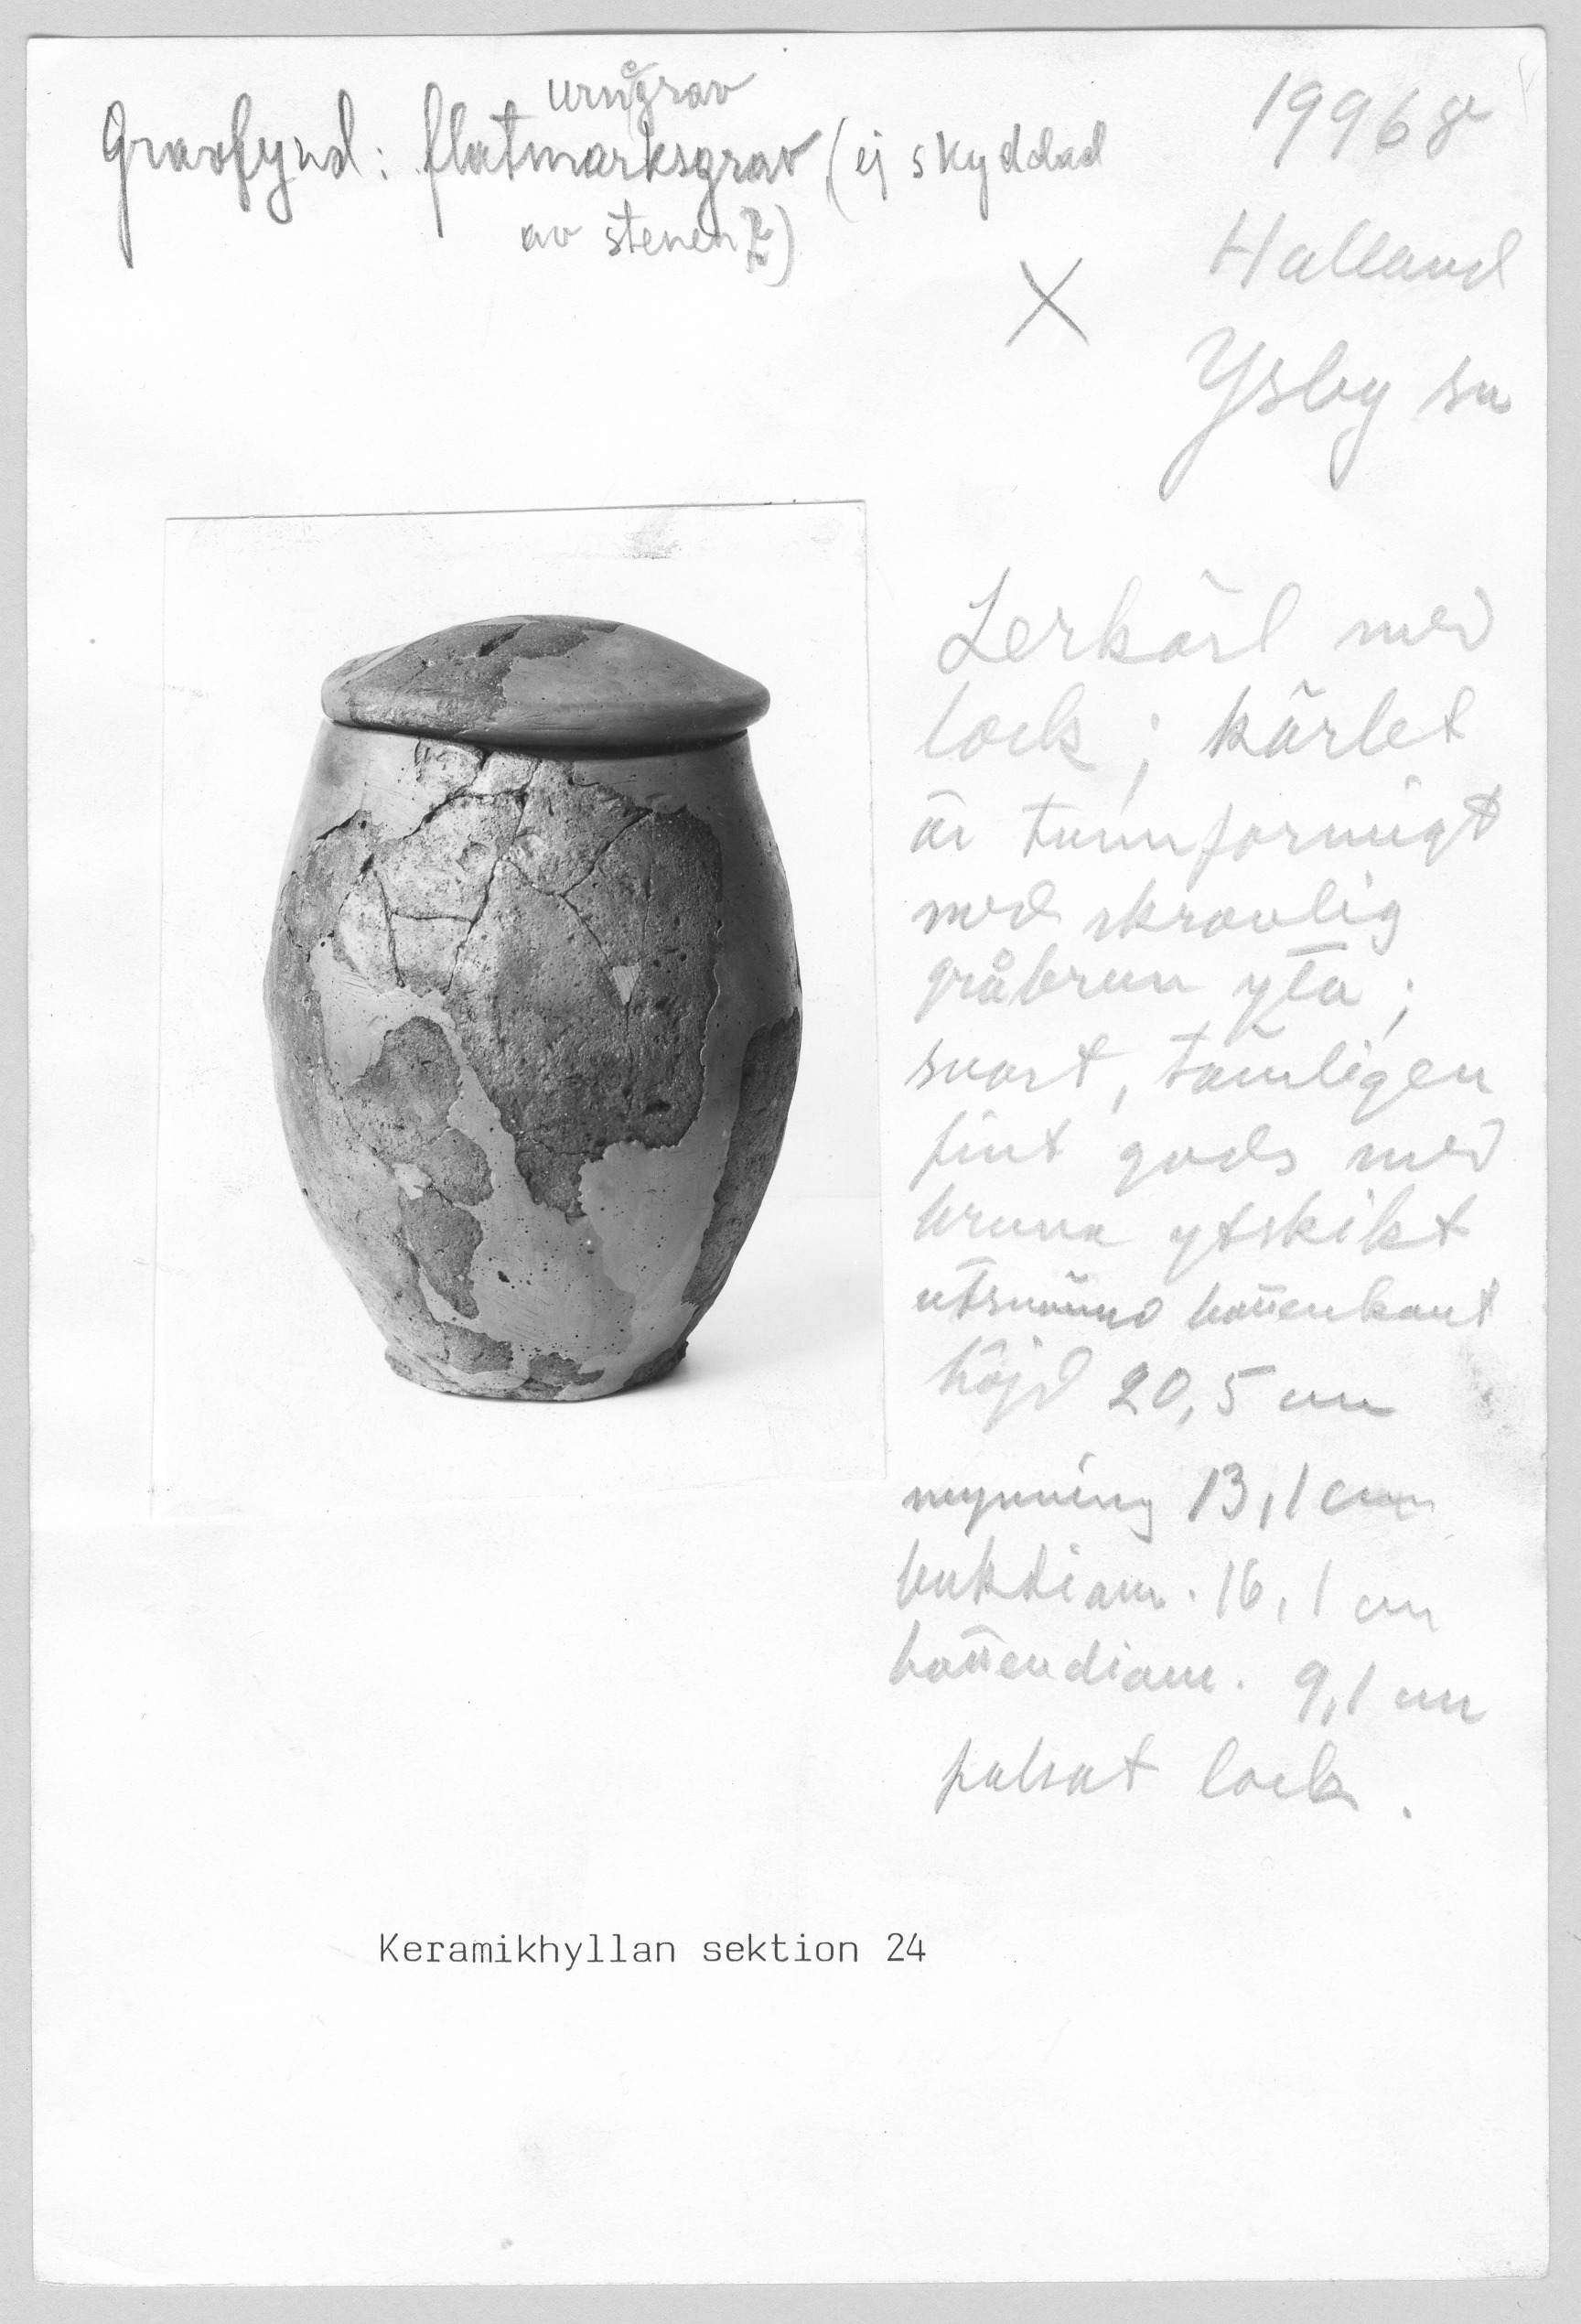 urnegrav
Gravfynd: flatmarksgrav (ej skyddad
av stenen)
1996
Halland
Ysby sn
X
Lerkärl med
lock; kärlet
är tunnformigt
med skrovlig
gråbrun yta;
svart, tämligen
fint gods med
bruna ytskikt
utsvängd bottenkant
höjd 20,5 cm
mynning 13,1 cm
bukdiam. 16,1 cm
bottendiam. 9,1 cm
putsat lock.
Keramikhyllan sektion 24